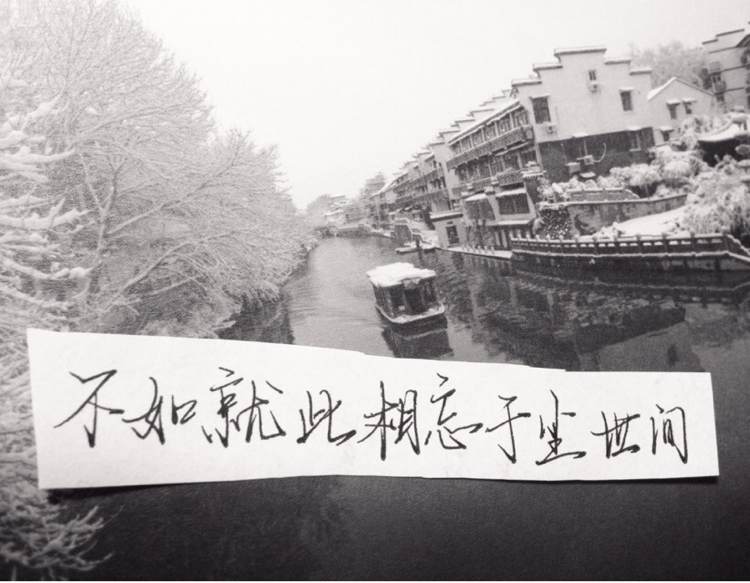 不如就此相忘于尘世间